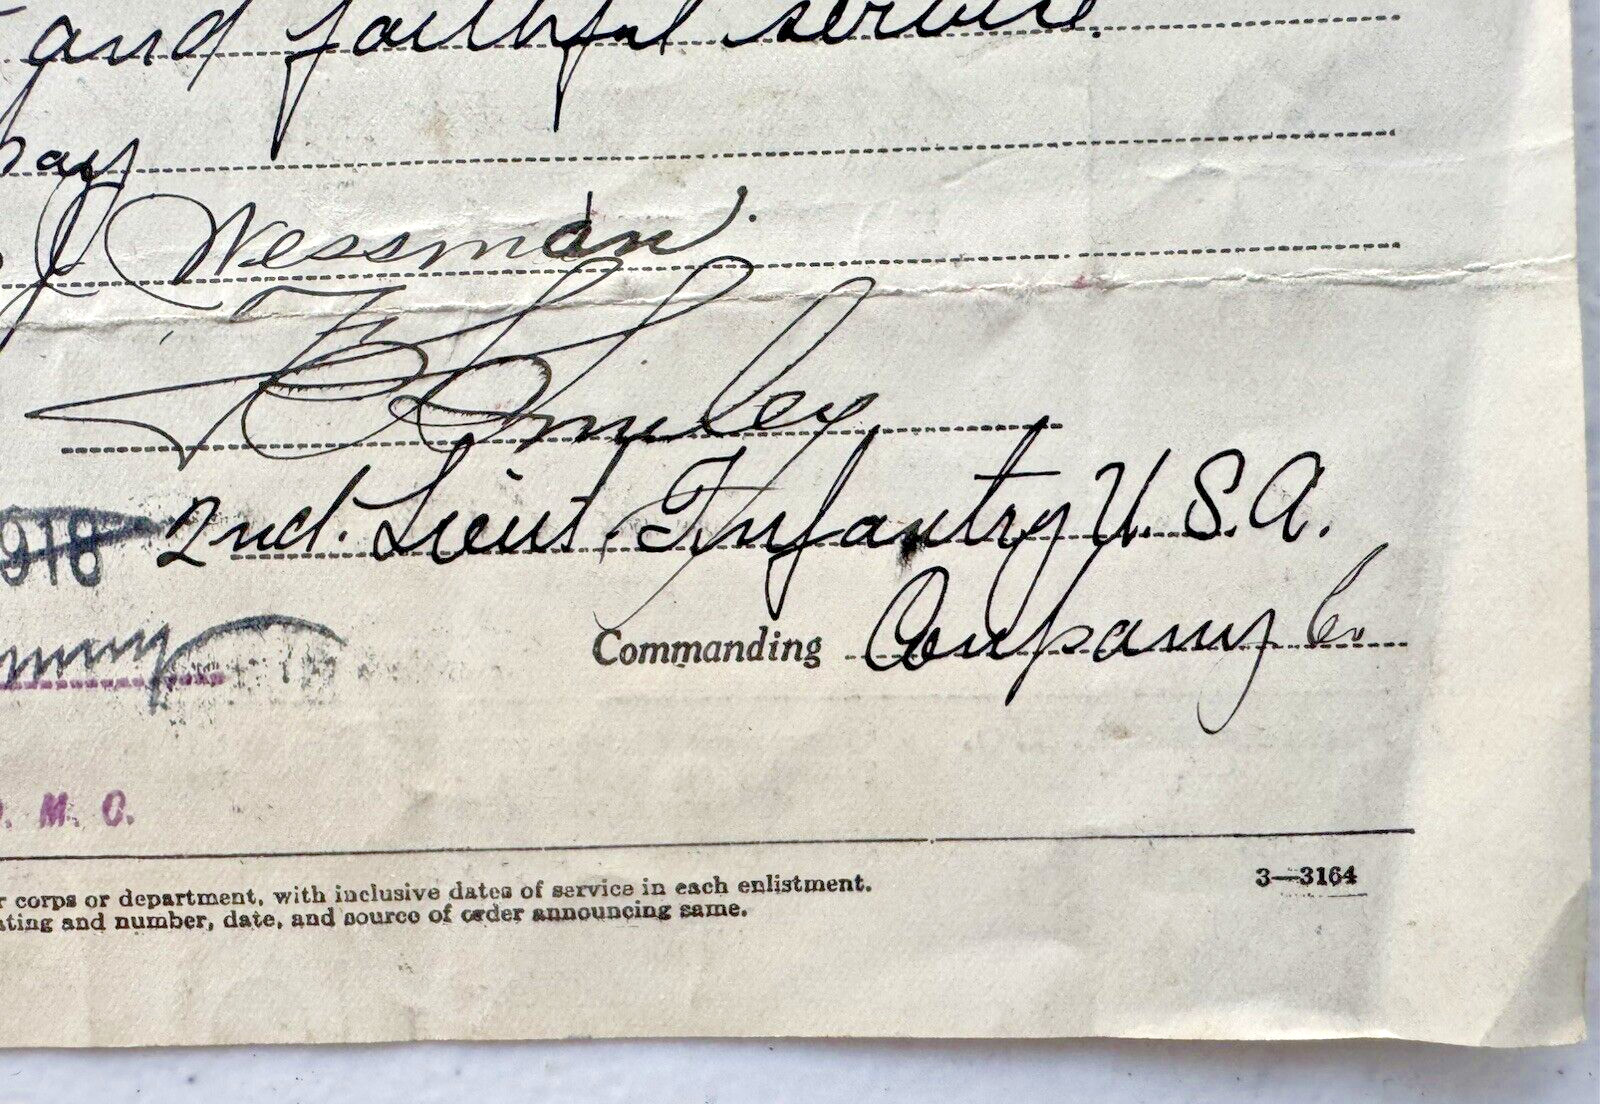 and faithful service.
J Wessman.
Smiley
918
2nd. Lieut. Infantry U.S.A.
Commanding Company C.
M. O.
corps or department, with inclusive dates of service in each enlistment.
3—3164
and number, date, and source of order announcing same.